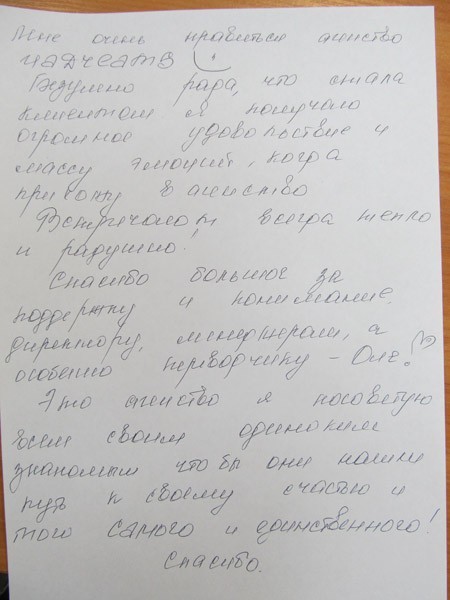 Мне очень нравиться агнство
Безумно рада, что стала
клиентом и получаю
огромное удовольствие и
массу эмоций, когда
прихожу в агнство
Встречают всегда тепло
и радушно!
Спасибо большое за
поддержку и понимание.
директору, менеджерам, а
особенно переводчику - Оле!
Это агнство я посоветую
всем своим одиноким
знакомым что бы они нашли
путь к своему счастью и
того самого и единственного!
Спасибо.